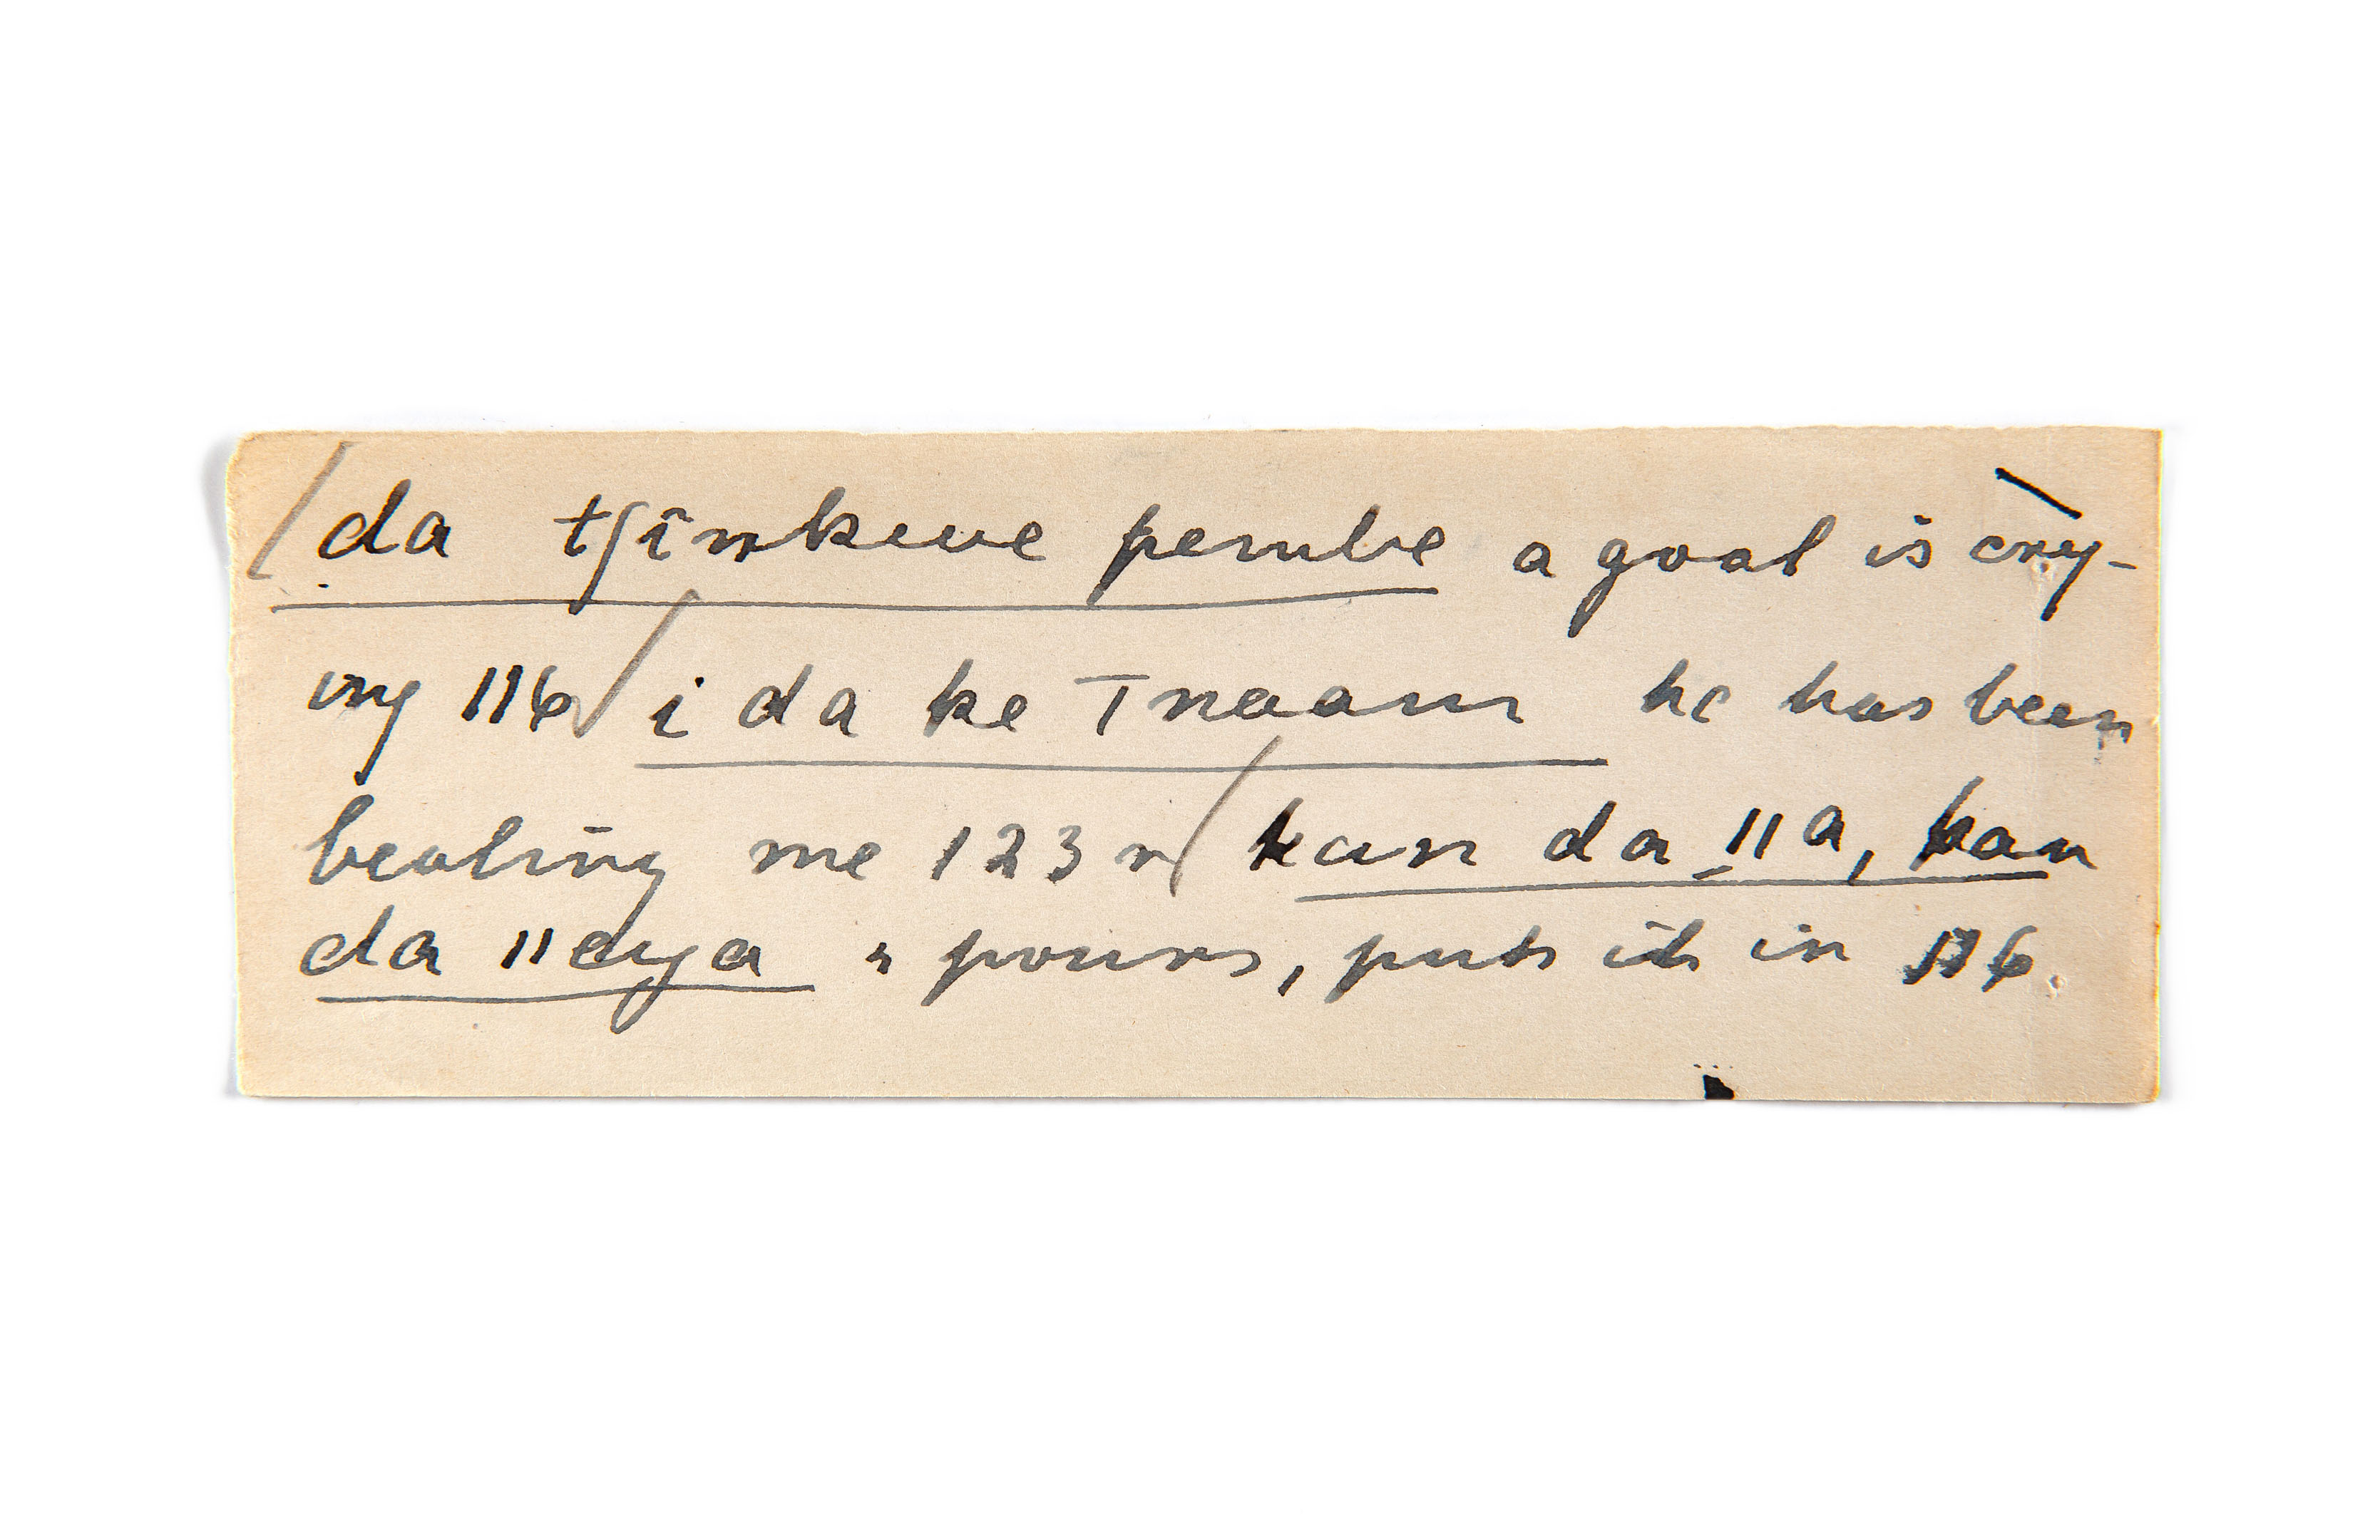 /da tʃînkewe pembe a goat is cry-
ing 116/ i da ke Tnaam he has been
beating me 123 r/ kan da ǁa, kan
da ǁaya " pours, puts it in 116.